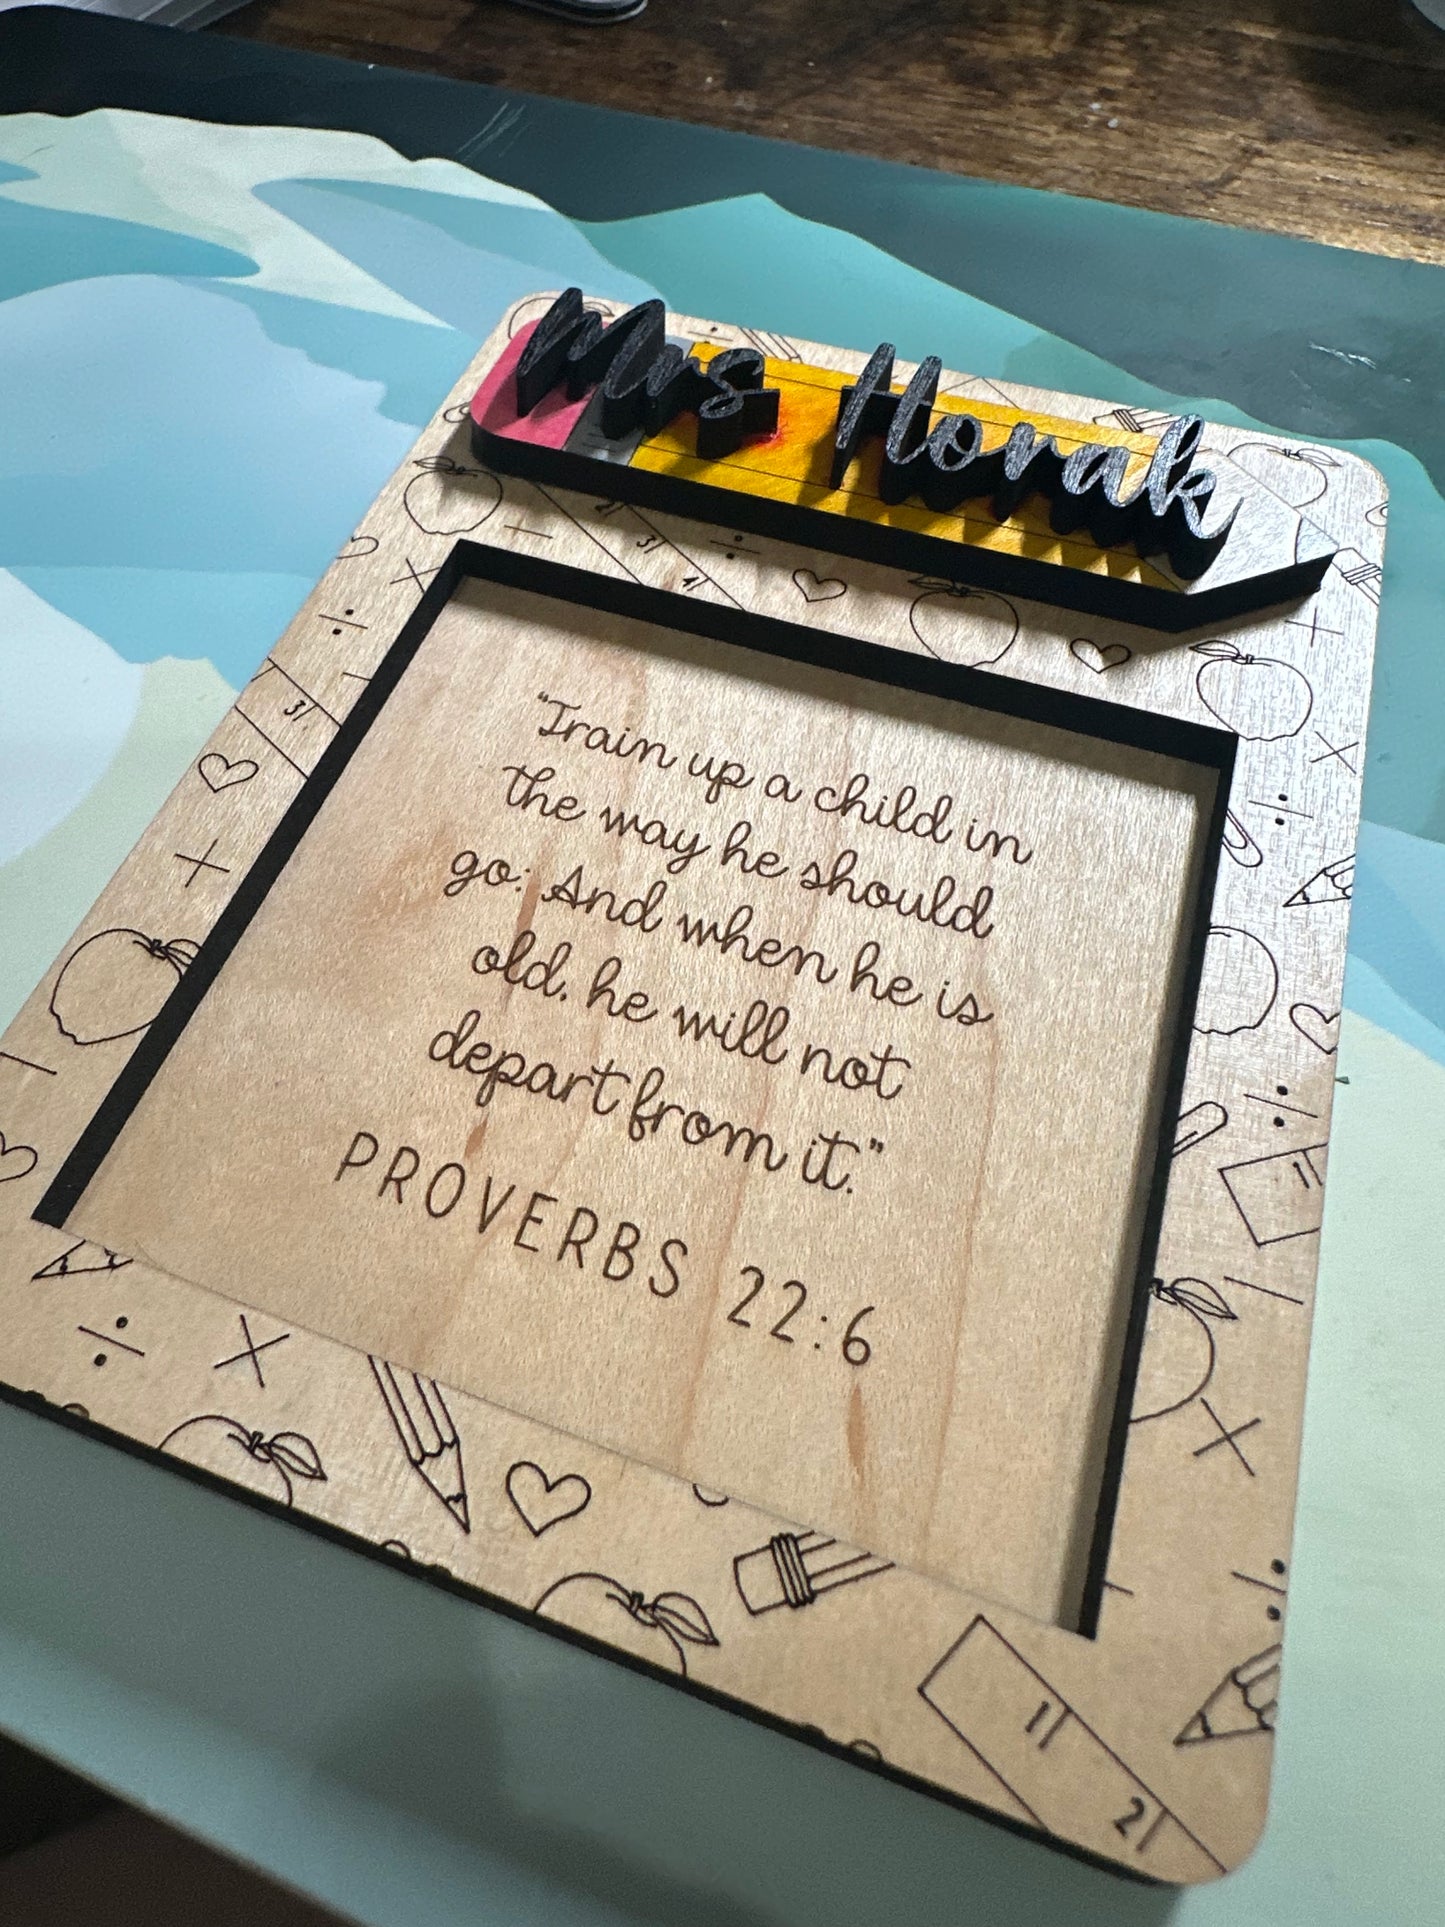 Mrs Horak
"Train up a child in
the way he should
go: And when he is
old, he will not
depart from it."
PROVERBS 22:6
2
3
4
3
1
2